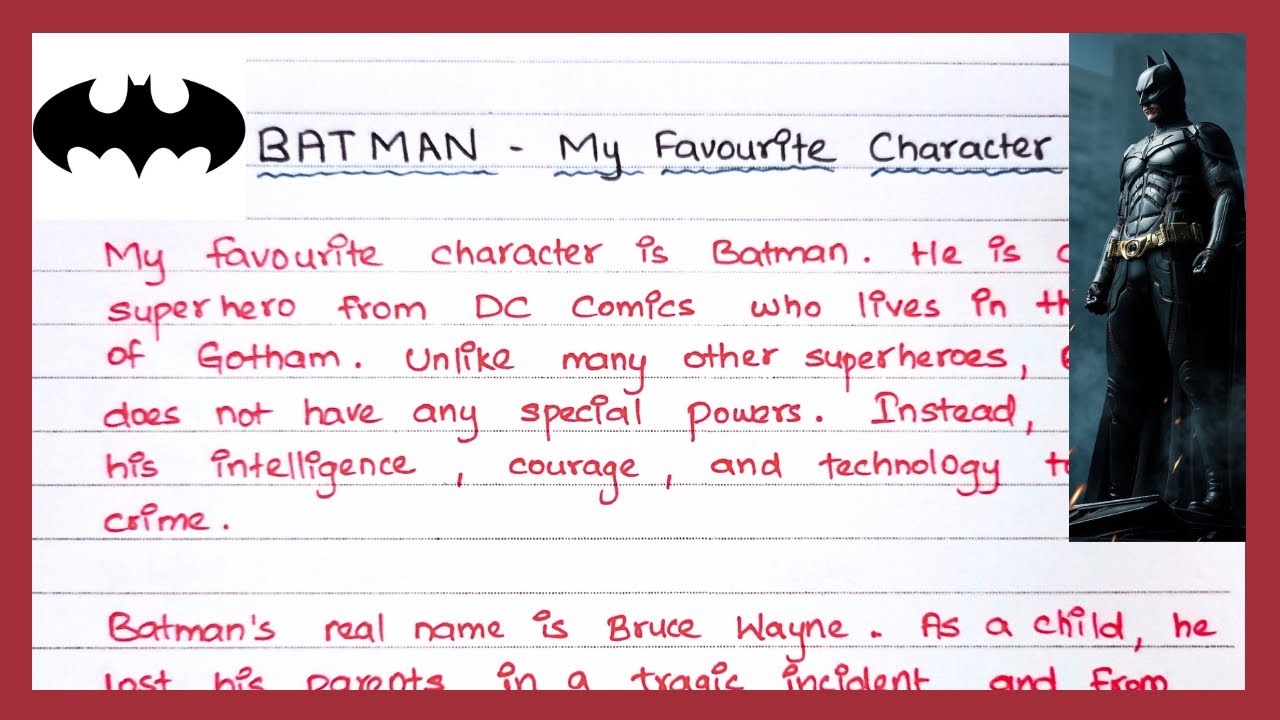 BATMAN - My Favourite Character
My favourite character is Batman. He is
superhero from DC Comics who lives in
of Gotham. Unlike many other superheroes,
does not have any special powers. Instead,
his intelligence, courage, and technology
crime.
Batman's real name is Bruce Wayne. As a child, he
lost his parents in a tragic incident and from